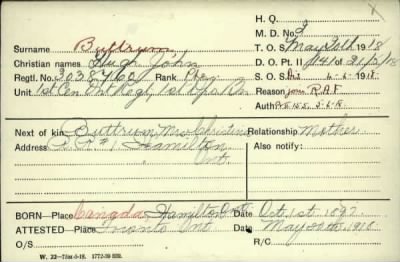 H. Q.
M. D. No. 2
Surname Buttrum
T. O. S. May 20th 1918
Christian names Hugh John
D. O. Pt. II #141 of 21/5/18
Regtl. No. 3038760 Rank Pte.
S. O. S. Dis 4-6-1918
Unit 1st Cen. Ont. Regt, 1st Dpo. Bn
Reason join R.A.F.
Auth
Next of kin Buttrum Mrs Christina Relationship Mother
Address R.R. #1 Hamilton Also notify:
" Ont.
BORN—Place Canada, Hamilton Ont Date Oct. 1st 1897
ATTESTED Place Toronto Ont Date May 20th 1918
O/S R/C
W. 22